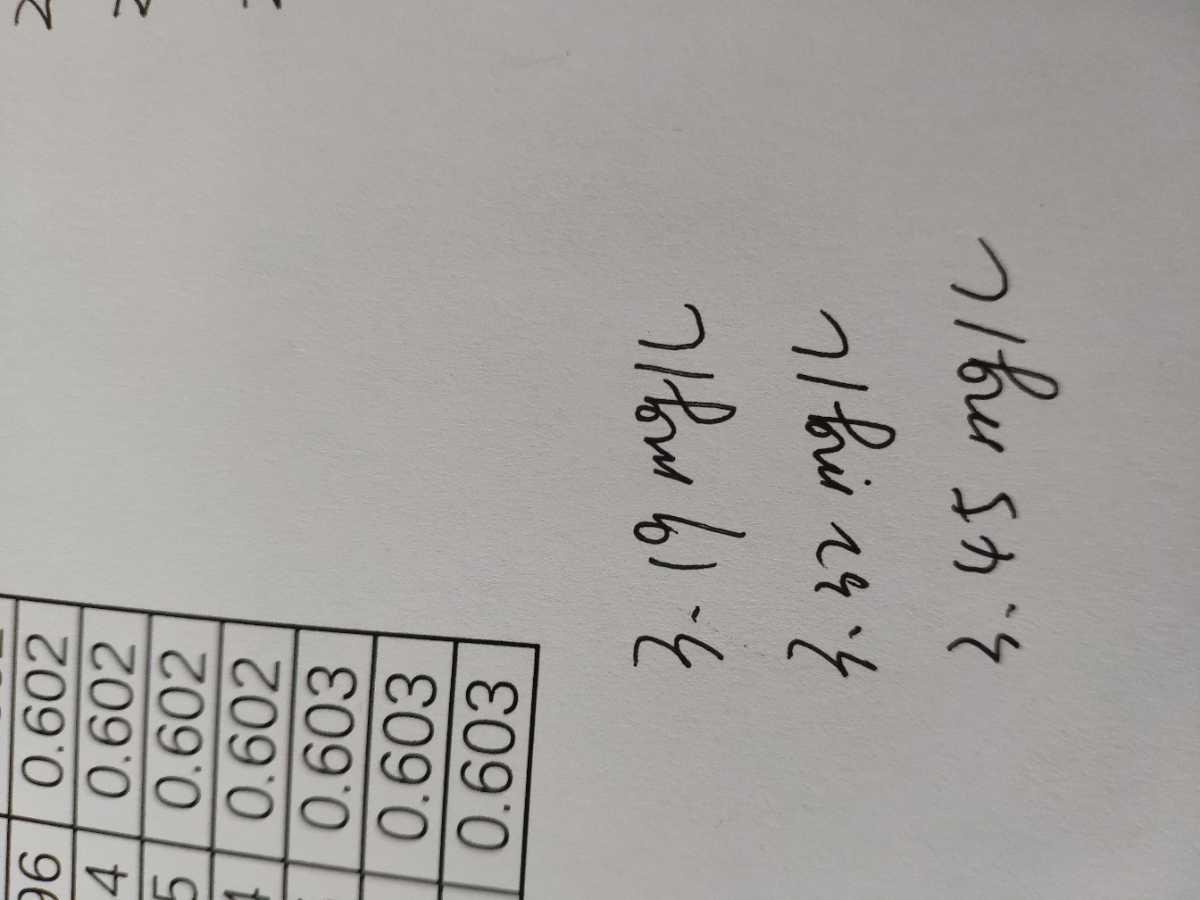 96 0.602
4 0.602
5 0.602
0.602
0.603
0.603
0.603
3.19 mg/L
3.32 mg/L
3.45 mg/L